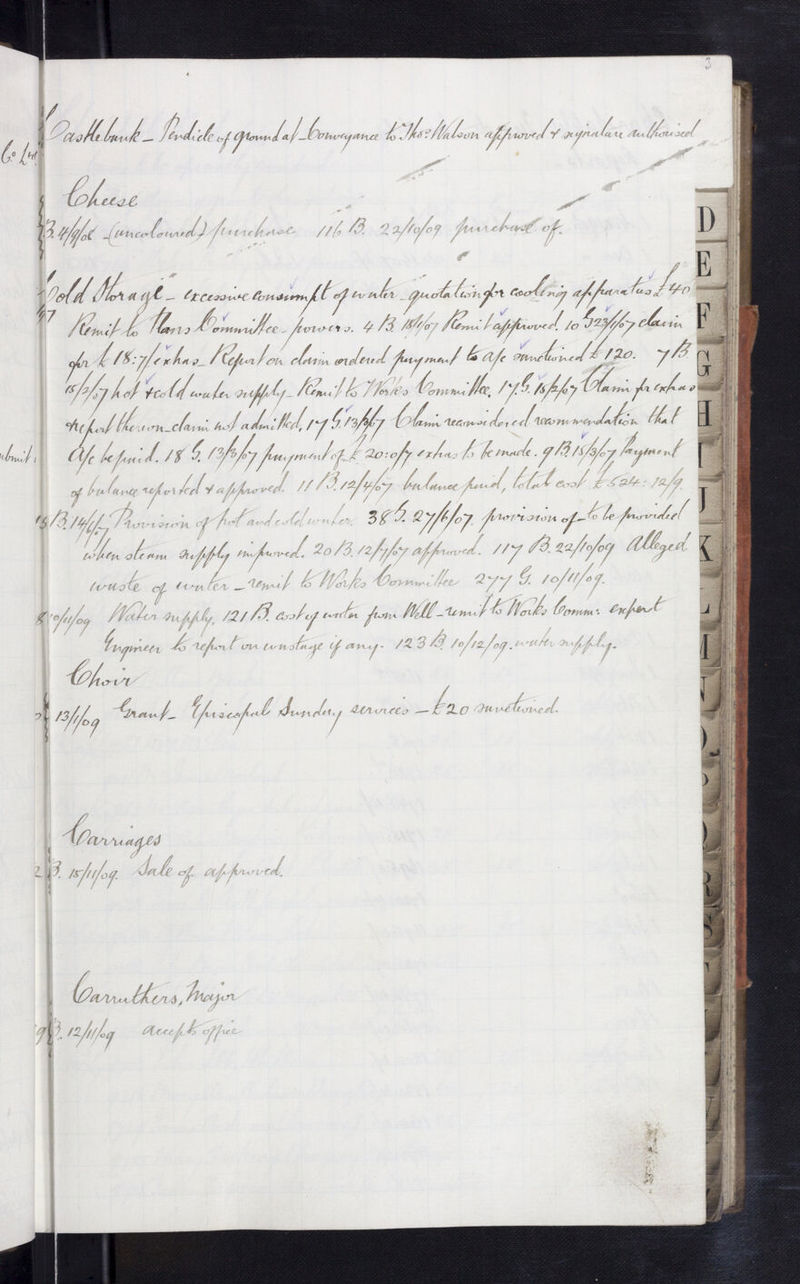 3
Castlebank – Pendicle of ground at – Conveyance to Thos Watson approved & signature authorised
Co Ltd
Cheese
B. 4/9/08 – (uncoloured) purchase 116 B. 22/10/09 purchase of.
Cold Storage – excessive consumpt of water – quotation for cooling apparatus £40
Remit to Plans Committee – powers. 4 B 18/1/07 Remit approved. 10 G 23/1/07 claim
for £18:7/ extras – Report on claim ordered payment to a/c sanctioned £120. 7 B
15/2/07 hot & cold water supply – Remit to Works Committee. 17 G. 18/2/07 Claim for extras
& report thereon – claim not admitted. 17 G. 13/3/07 Claim reconsidered recommendation that
a/c be paid. 18 G. 13/3/07 payment of £20:0/7 extras to be made. 9 B 15/3/07 Payment
of balance reported & approved. 11 B. 12/4/07 balance paid, total cost £524:12/9.
B. 14/6/07 Provision of hot and cold water. 38 G. 27/6/07. provision of – to be provided
when steam supply improved. 20 B. 12/7/07 approved. 117 B. 22/10/09 Alleged
waste of water – remit to Works Committee 277 G. 10/11/09.
10/11/09 Water supply. 121 B. cost of water from Well – remit to Works Comm: expert
Engineer to report on wastage if any. 123 B. 10/12/09. water supply.
Choir
13/1/09 Grant – Episcopal Sunday services – £20 sanctioned.
Carriages
B. 15/11/09. Sale of approved.
Carruthers, Major
B. 12/11/09 accepts office
D
E
F
G
H
I
J
K
L
M
N
O
P
R
S